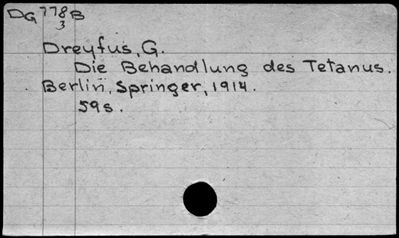 DG 778 B
3
Dreyfus, G.
Die Behandlung des Tetanus.
Berlin, Springer, 1914.
59s.